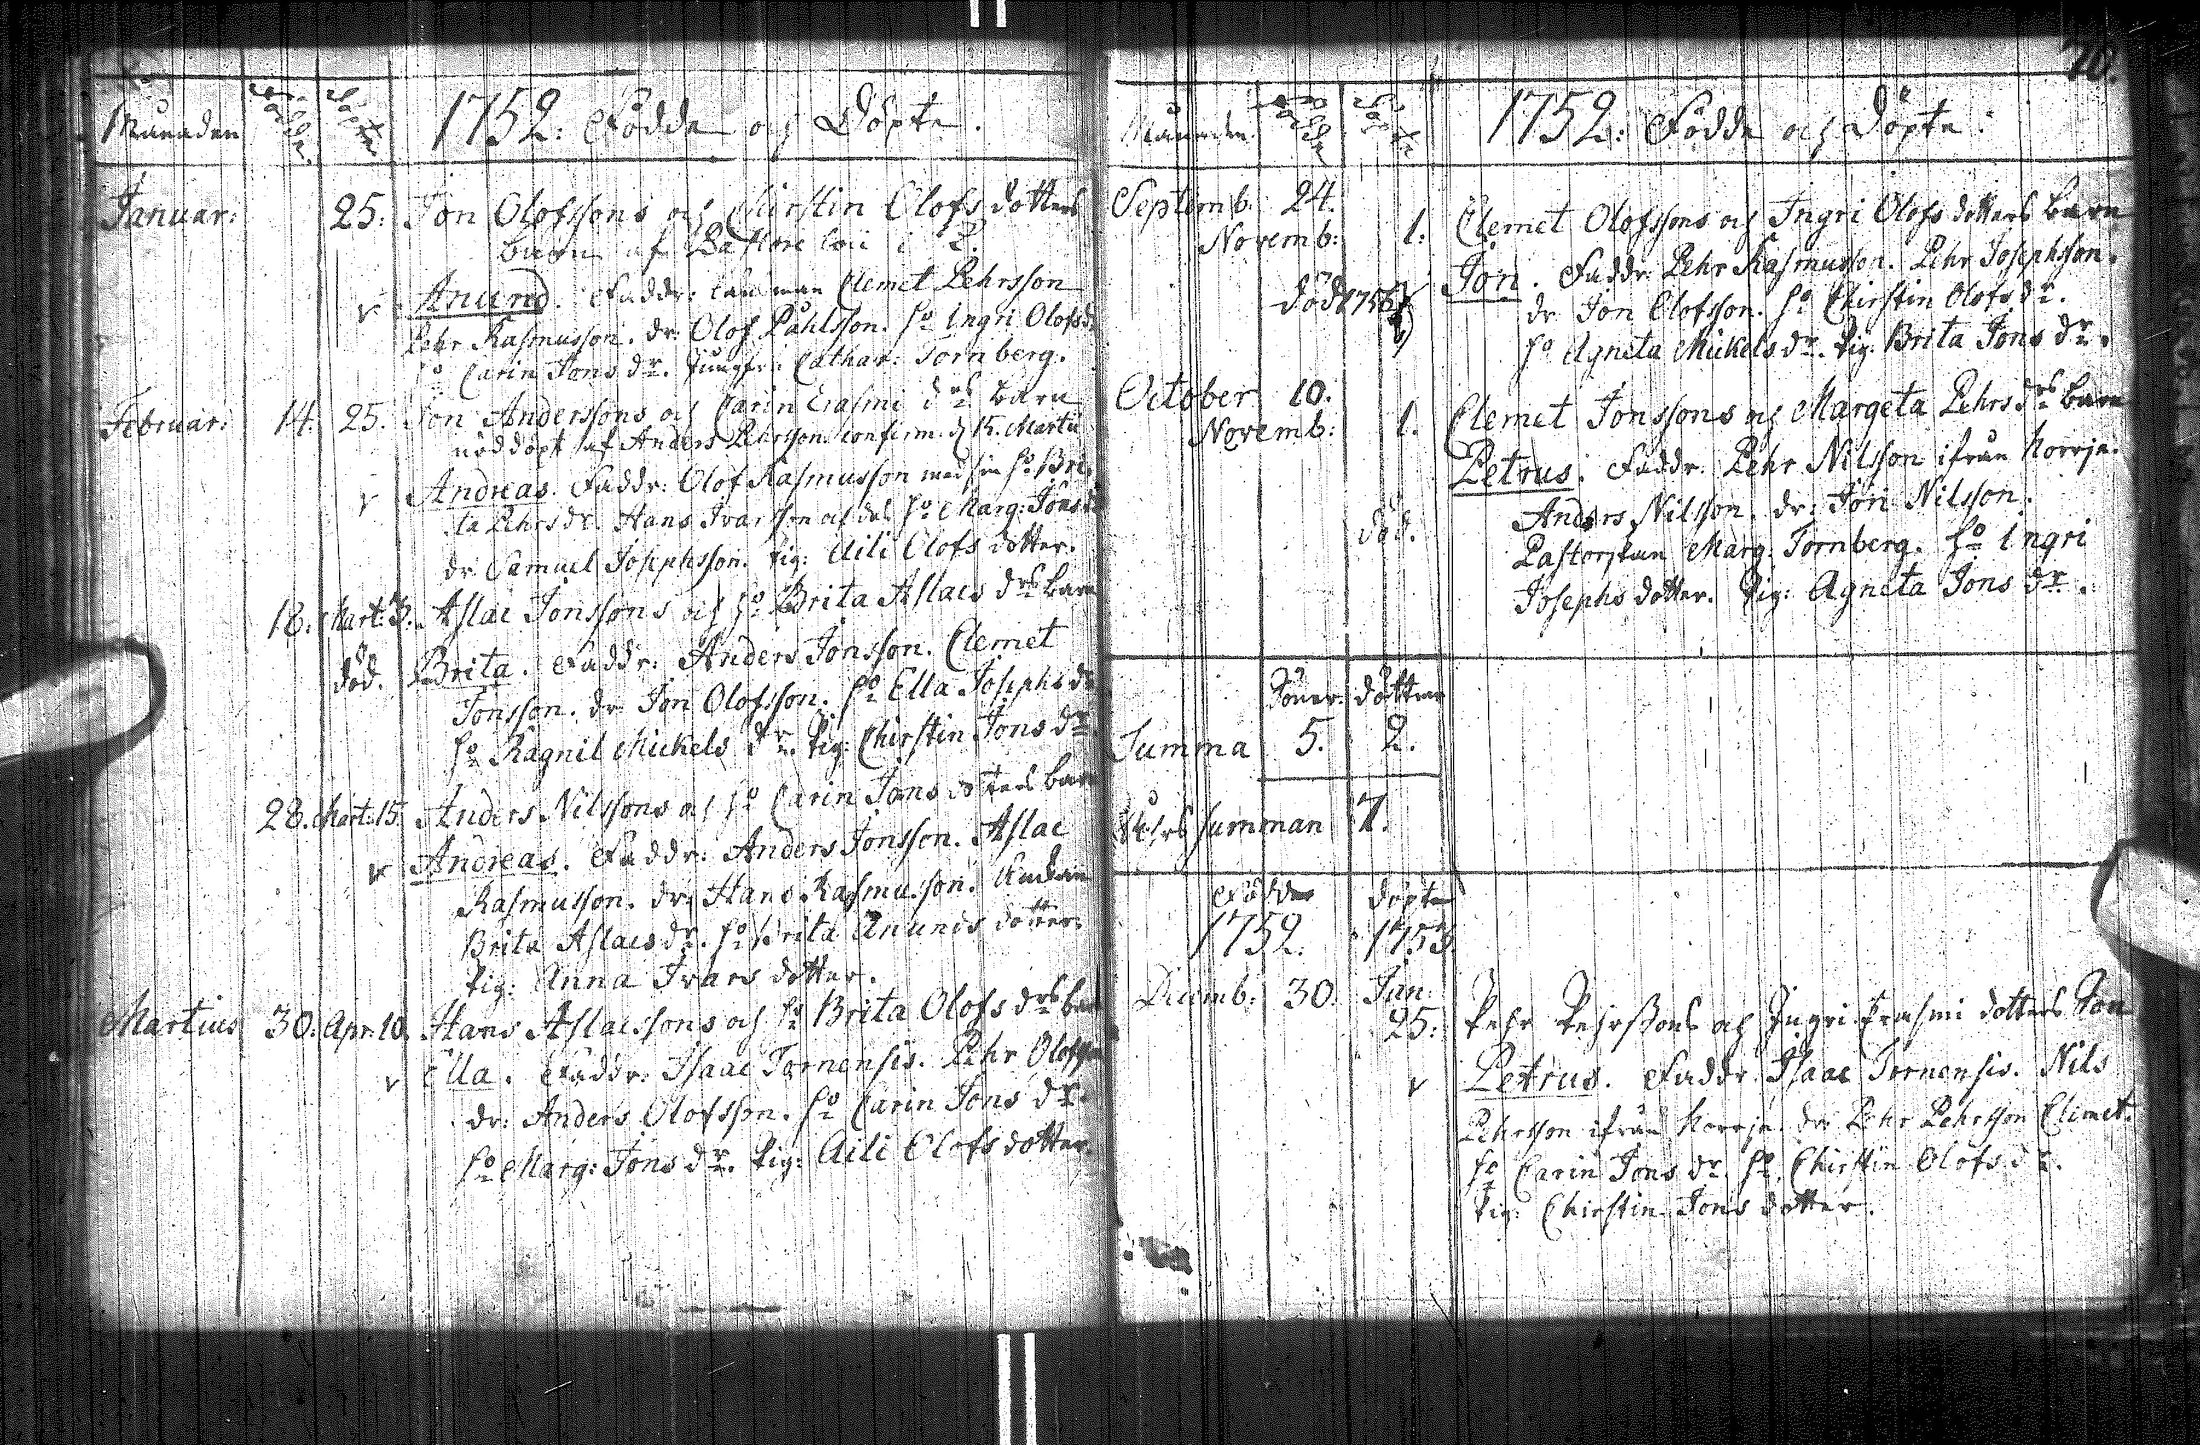 Månaden Födde Döpte 1752: Födde och Döpte.
Januar: 25: Jon Olofssons och Chirstin Olofs dotters
barn af Pastore loci i L.
v Anund. Faddr: Clemet Pehrsson
Pehr Rasmusson. dr: Olof Påhlsson. H:o Ingri Olofsd:
H:o Carin Jons dr. Jungfr: Cathar: Tornberg.
Februar: 14. 25. Jon Anderssons och Carin Erasmi drs barn
nöddöpt af Anders Pehrsson confirm. d 15. Martii
v Andreas. Faddr: Olof Rasmusson med sin H:o Bri
ta Pehrs dr. Hans Ivarsson och dess H:o Marg: Jons d
dr: Samuel Josephsson. Pig: Aili Olofs dotter.
18. Mart: 3. Aslac Jonssons och H:o Brita Aslacs drs barn
död. Brita. Faddr: Anders Jonsson. Clemet
Jonsson. dr: Jon Olofsson. H:o Ella Josephs dr
H:o Ragnil Mickels dr. Pig: Chirstin Jons dr
28. Mart: 15. Anders Nilssons och H:o Carin Jons dotters barn
v Andreas. Faddr: Anders Jonsson. Aslac
Rasmusson. dr: Hans Rasmusson. Enkan
Brita Aslacs dr. H:o Brita Anunds dotter.
Pig: Anna Ivars dotter.
Martius 30. Apr: 10. Hans Aslacssons och H:o Brita Olofs drs barn
v Ella. Faddr: Isaac Tornensis. Pehr Olofsson
dr: Anders Olofsson. H:o Carin Jons dr.
H:o Marg: Jons dr. Pig: Aili Olofs dotter.
70.
Månaden Födde Döpte 1752: Födde och Döpte:
Septemb. 24.
Novemb: 1. Clemet Olofssons och Ingri Olofs dotters barn
Jon. Faddr: Pehr Rasmusson. Pehr Josephsson.
död 1756 dr: Jon Olofsson. H:o Chirstin Olofs dr.
H:o Agneta Mickels dr. Pig: Brita Jons dr.
October 10.
Novemb: 1. Clemet Jonssons och Margeta Pehrs drs barn
Petrus. Faddr: Pehr Nilsson ifrån Norrje.
Anders Nilsson. dr: Jon Nilsson.
död. Pastorskan Marg: Tornberg. H:o Ingri
Josephs dotter. Pig: Agneta Jons dr.
Söner döttrar
Summa 5. 2.
summan 7.
Födde döpte
1752. 1753.
Decemb: 30. Jan:
25: Pehr Pehrssons och Ingri Erasmi dotters Son
v Petrus. Faddr: Isaac Tornensis. Nils
Pehrsson ifrån Norrje. dr: Pehr Pehrsson Clemet.
H:o Carin Jons dr. H:o Chirstin Olofs dr.
Pig: Chirstin Jons dotter.